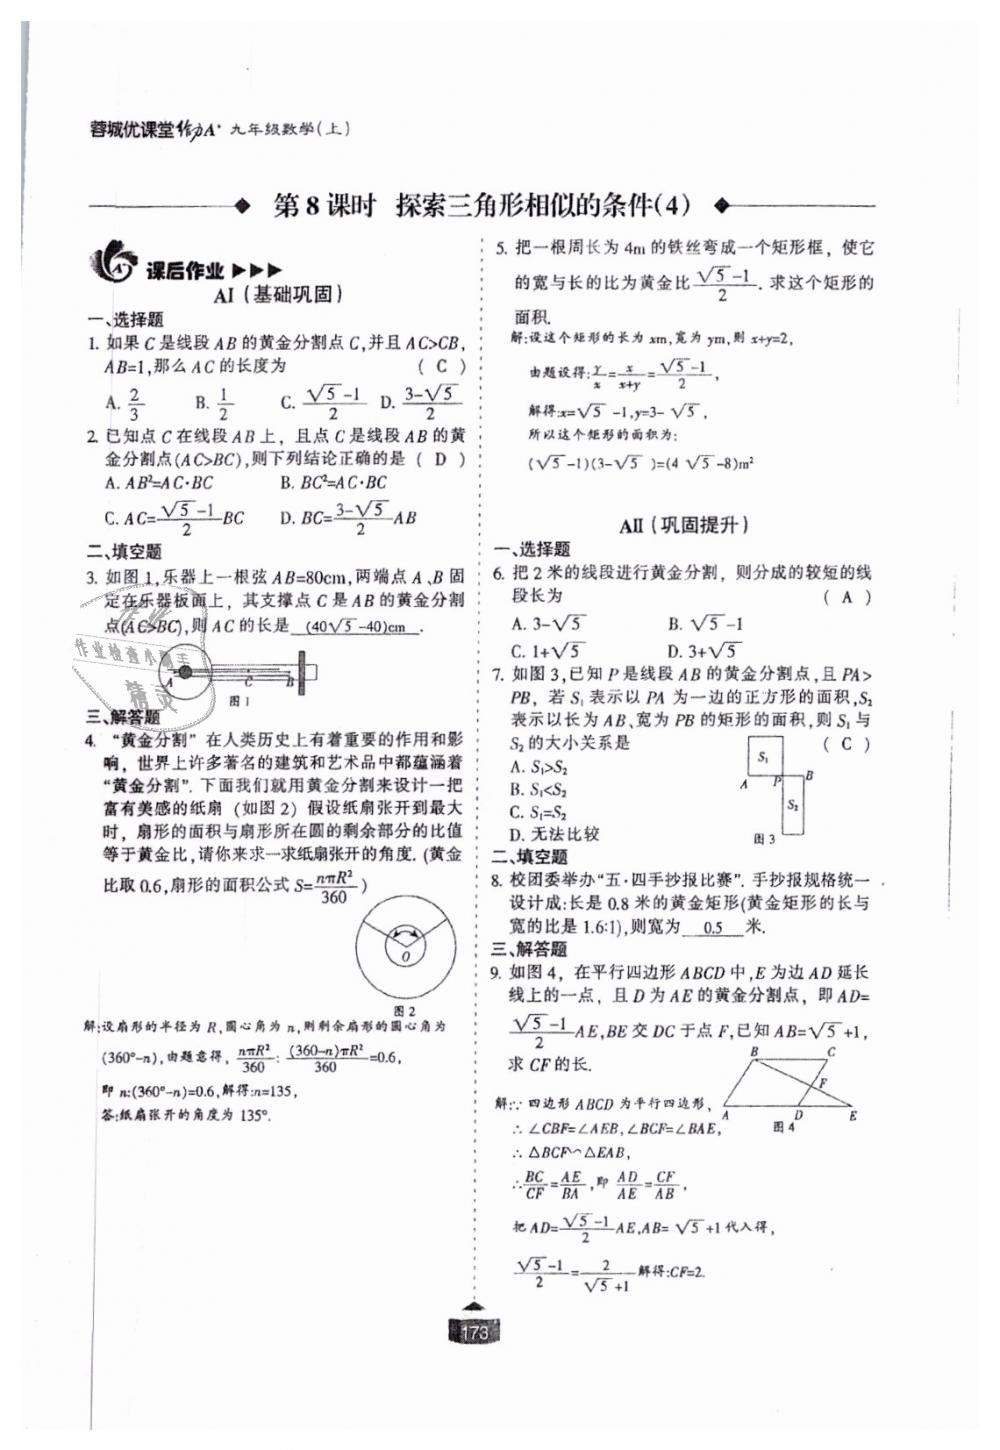 蓉城优课堂 给力A⁺ 九年级数学(上)
第 8 课时 探索三角形相似的条件(4)
课后作业▶▶▶
AⅠ(基础巩固)
一、选择题
1. 如果 C 是线段 AB 的黄金分割点 C,并且 AC>CB,
AB=1,那么 AC 的长度为 ( C )
A. 2/3 B. 1/2 C. (√5-1)/2 D. (3-√5)/2
2. 已知点 C 在线段 AB 上，且点 C 是线段 AB 的黄
金分割点(AC>BC),则下列结论正确的是 ( D )
A. AB²=AC·BC B. BC²=AC·BC
C. AC=(√5-1)/2 BC D. BC=(3-√5)/2 AB
二、填空题
3. 如图 1,乐器上一根弦 AB=80cm,两端点 A、B 固
定在乐器板面上，其支撑点 C 是 AB 的黄金分割
点(AC>BC),则 AC 的长是 (40√5-40)cm .
A C B
图 1
三、解答题
4. “黄金分割”在人类历史上有着重要的作用和影
响，世界上许多著名的建筑和艺术品中都蕴涵着
“黄金分割”. 下面我们就用黄金分割来设计一把
富有美感的纸扇（如图 2）假设纸扇张开到最大
时，扇形的面积与扇形所在圆的剩余部分的比值
等于黄金比,请你来求一求纸扇张开的角度. (黄金
比取 0.6,扇形的面积公式 S=nπR²/360)
O
图 2
解:设扇形的半径为 R,圆心角为 n,则剩余扇形的圆心角为
(360°-n),由题意得, nπR²/360 : (360-n)πR²/360=0.6,
即 n:(360°-n)=0.6,解得:n=135,
答:纸扇张开的角度为 135°.
5. 把一根周长为 4m 的铁丝弯成一个矩形框，使它
的宽与长的比为黄金比 (√5-1)/2. 求这个矩形的
面积.
解:设这个矩形的长为 xm,宽为 ym,则 x+y=2,
由题设得: y/x = x/(x+y) = (√5-1)/2,
解得:x=√5-1,y=3-√5,
所以这个矩形的面积为:
(√5-1)(3-√5)=(4√5-8)m²
AⅡ(巩固提升)
一、选择题
6. 把 2 米的线段进行黄金分割，则分成的较短的线
段长为 ( A )
A. 3-√5 B. √5-1
C. 1+√5 D. 3+√5
7. 如图 3,已知 P 是线段 AB 的黄金分割点,且 PA>
PB，若 S₁ 表示以 PA 为一边的正方形的面积,S₂
表示以长为 AB、宽为 PB 的矩形的面积,则 S₁ 与
S₂ 的大小关系是 ( C )
A. S₁>S₂
B. S₁<S₂
C. S₁=S₂
D. 无法比较
S₁ A P B S₂
图 3
二、填空题
8. 校团委举办“五·四手抄报比赛”. 手抄报规格统一
设计成:长是 0.8 米的黄金矩形(黄金矩形的长与
宽的比是 1.6:1),则宽为 0.5 米.
三、解答题
9. 如图 4，在平行四边形 ABCD 中,E 为边 AD 延长
线上的一点，且 D 为 AE 的黄金分割点，即 AD=
(√5-1)/2 AE,BE 交 DC 于点 F,已知 AB=√5+1,
求 CF 的长.
B C F A D E
图 4
解:∵ 四边形 ABCD 为平行四边形,
∴ ∠CBF=∠AEB,∠BCF=∠BAE,
∴ △BCF∽△EAB,
∴ BC/CF = AE/BA,即 AD/AE = CF/AB,
把 AD=(√5-1)/2 AE,AB=√5+1 代入得,
(√5-1)/2 = 2/(√5+1) 解得:CF=2.
173
作业检查小助手
精灵